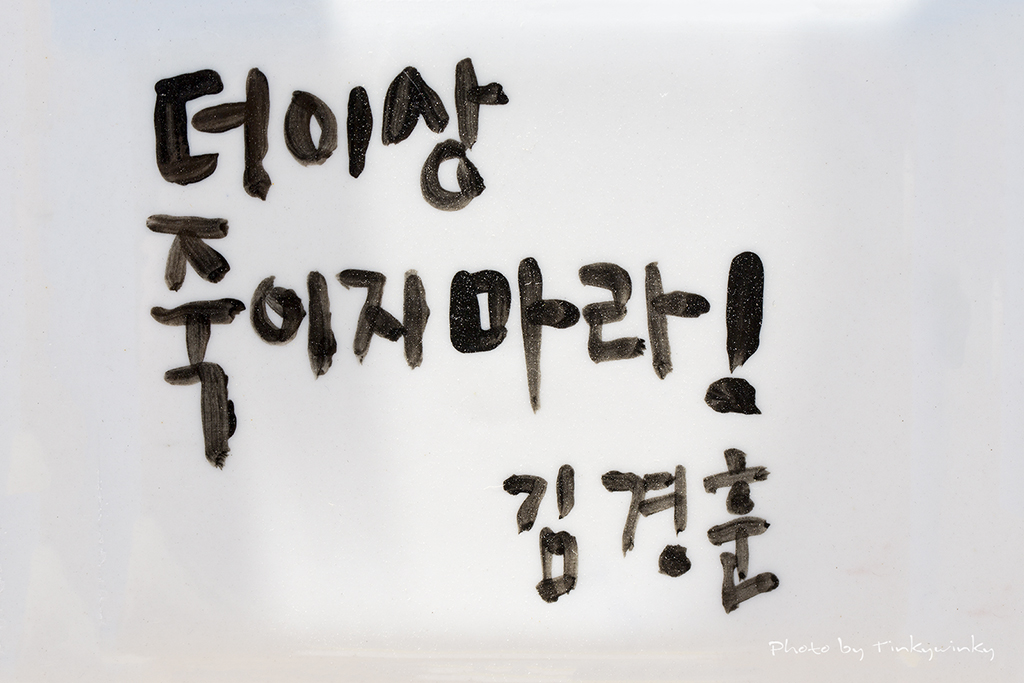 더이상
죽이지마라!
김경훈
Photo by Tinkywinky